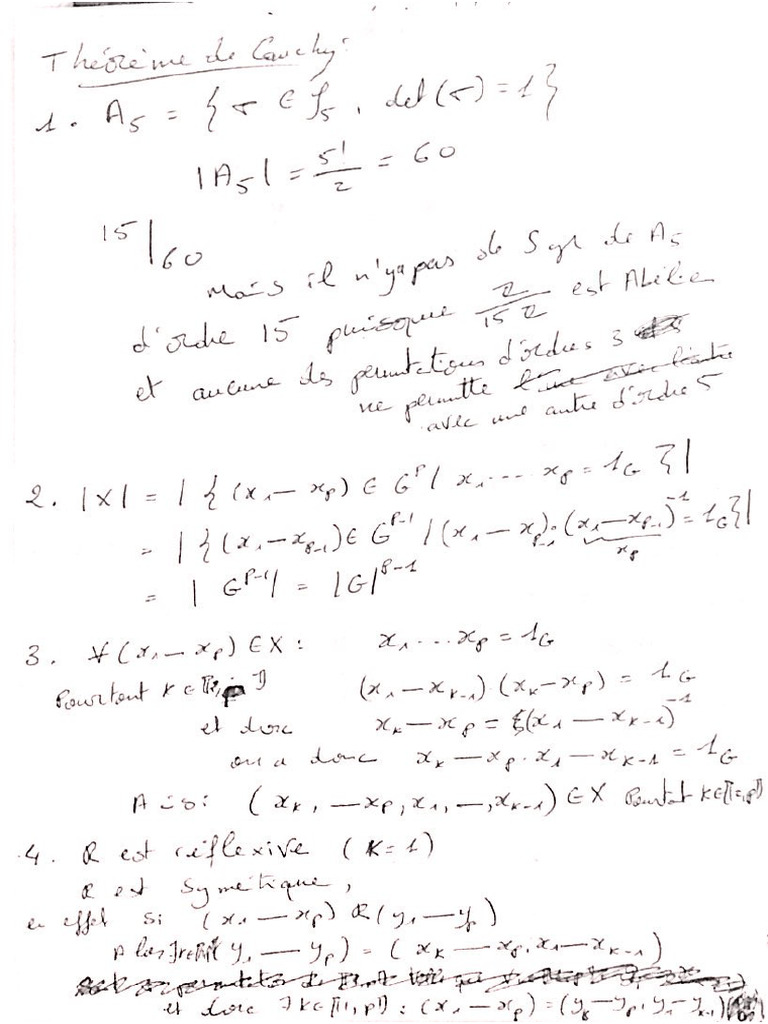 Théorème de Cauchy:
1. A₅ = { σ ∈ 𝒮₅, det(σ) = 1 }
|A₅| = 5!/2 = 60
15 | 60
Mais il n'y a pas de Sgr de A₅
d'ordre 15 puisque Z/15Z est Abélien
et aucune des permutations d'ordres 3
ne permutte
avec une autre d'ordre 5
2. |X| = | { (x₁ — xₚ) ∈ Gᵖ / x₁ ... xₚ = 1_G } |
= | { (x₁ — xₚ₋₁) ∈ Gᵖ⁻¹ / (x₁ — xₚ₋₁) · (x₁ — xₚ₋₁)⁻¹ = 1_G } |
xₚ
= | Gᵖ⁻¹ | = |G|ᵖ⁻¹
3. ∀ (x₁ — xₚ) ∈ X : x₁ ... xₚ = 1_G
Pour tout K ∈ (x₁ — x_{K-1}) · (x_K — xₚ) = 1_G
et donc x_K — xₚ = (x₁ — x_{K-1})⁻¹
on a donc x_K — xₚ · x₁ — x_{K-1} = 1_G
Ainsi (x_K, — xₚ, x₁, —, x_{K-1}) ∈ X Pour tout K ∈ ⟦1, p⟧
4. R est réflexive (K = 1)
R est Symétique,
en effet si (x₁ — xₚ) R (y₁ — yₚ)
Alors (y₁ — yₚ) = (x_K — xₚ, x₁ — x_{K-1})
et donc ∃ k ∈ ⟦1, p⟧ : (x₁ — xₚ) = (y_k — yₚ, y₁ — y_{k-1})